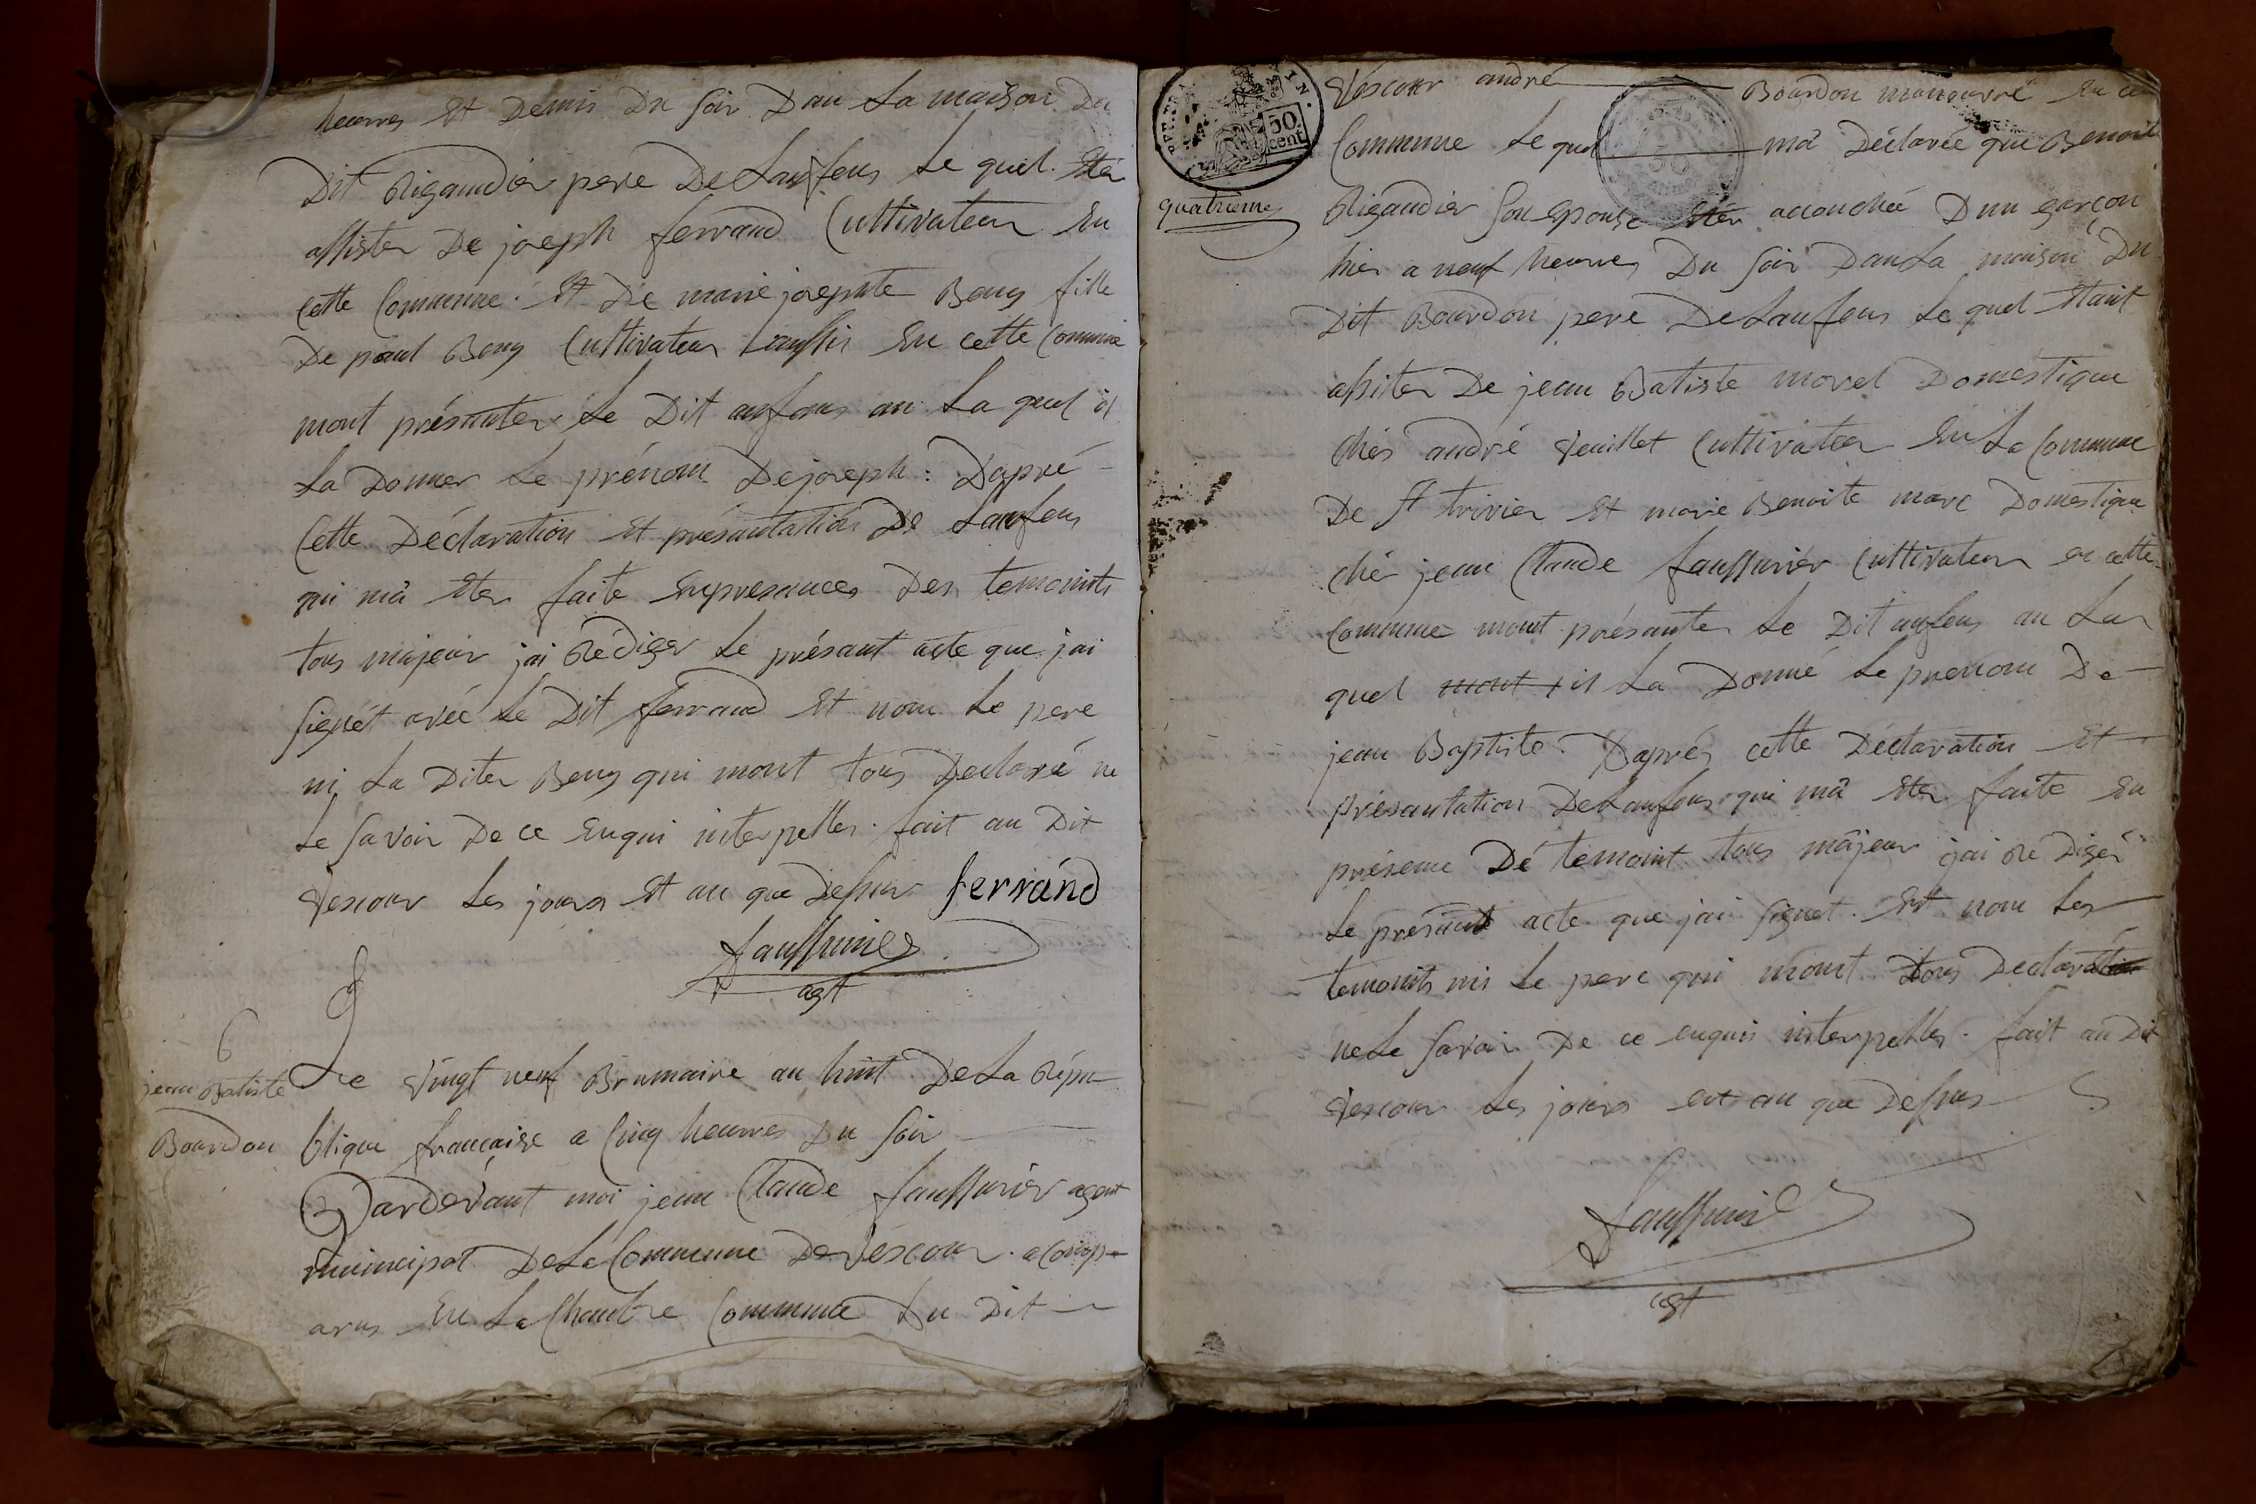 heures Et Demis Du soir Dan La maison Du
Dit Rigaudier pere De Lanfens Le quel Eter
assister De joseph ferrand Cultivateur En
Cette Commune. Et De marie josepte Bouy fille
De paul Bouy Cultivateur aussis En cette Commune
mont présanter Le Dit anfans au La quel il
La Donner Le prénom De joseph : D'apré
Cette Déclaration Et présantation De Lanfens
qui mâ Eter faite Enpresances Des temoints
tous majeur jai Rédiger Le présant acte que jai
Signét avéc Le Dit ferrand Et nom Le pere
ni La Diter Bouy qui mont tous Declaré ne
Le Savoir De ce Enqui interpeller. fait au Dit
Vescour Les jours Et an que Dessus ferránd
Saussurier
agt
6
jean Batiste
Bourdon
Le Vingt neuf Brumaire an huit De La Répu
blique francaise a Cinq heures Du soir
Pardevant moi jean Claude Saussurier agent
municipal De La Commune De Vescour. a Comp
arus En La Chambre Commune Du Dit
50 cent
quatrieme
Véscour andré Bourdon manouvré En ce
Commune Le quel mâ Déclarée que Benoite
Rigaudier Son Epouse Eter accouchée Dun garcon
hier a neuf heures Du soir Dan La maison Du
Dit Bourdon pere De Lanfens Le quel Etant
assiter De jean Batiste morel Domestique
chés andré Veuillet Cultivater En La Commune
De St trivier Et marie Benoite marc Domestique
ché jean Claude Saussurier Cultivateur en cette
Commune mont présanter Le Dit anfens au La
quel mont il La Donné Le prenom De
jean Baptiste. Daprés cette Déclaration Et
présantation De Lanfens qui mâ Eter faite En
présence Dé temoint tous mâjeur jai Rédigér
Le présant acte que jai Signet. Et nom Les
temoints nis Le pere qui mont tous Declaration
ne Le Savoir De ce enquis interpeller. fait au Dit
Vescour Les jours et an que Dessus
Saussurier
agt